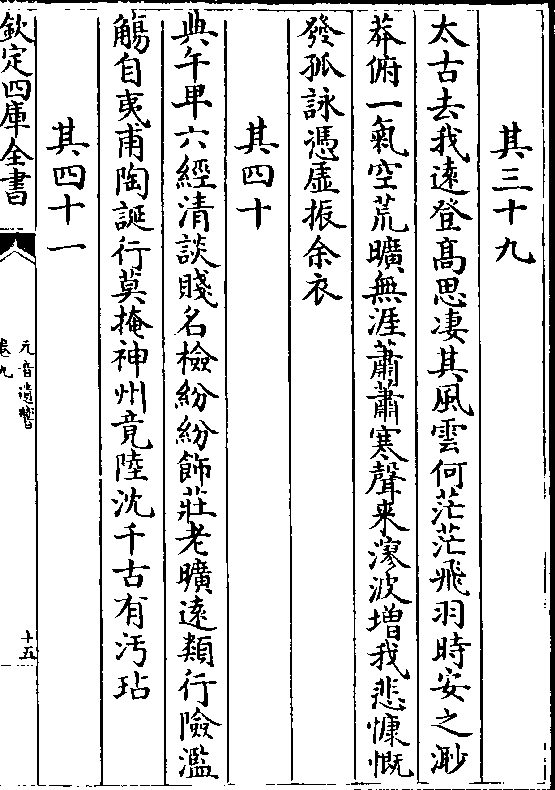 其三十九
太古去我遠登髙思凄其風雲何茫茫飛羽時安之渺
莽俯一氣空荒曠無涯蕭蕭寒聲来滄波增我悲慷慨
發孤詠憑虛振余衣
其四十
典午卑六經清談賤名檢紛紛飾莊老曠逺類行險濫
觴自夷甫陶誕行莫掩神州竟陸沈千古有汚玷
其四十一
欽定四庫全書
元音遺響
卷九
十五